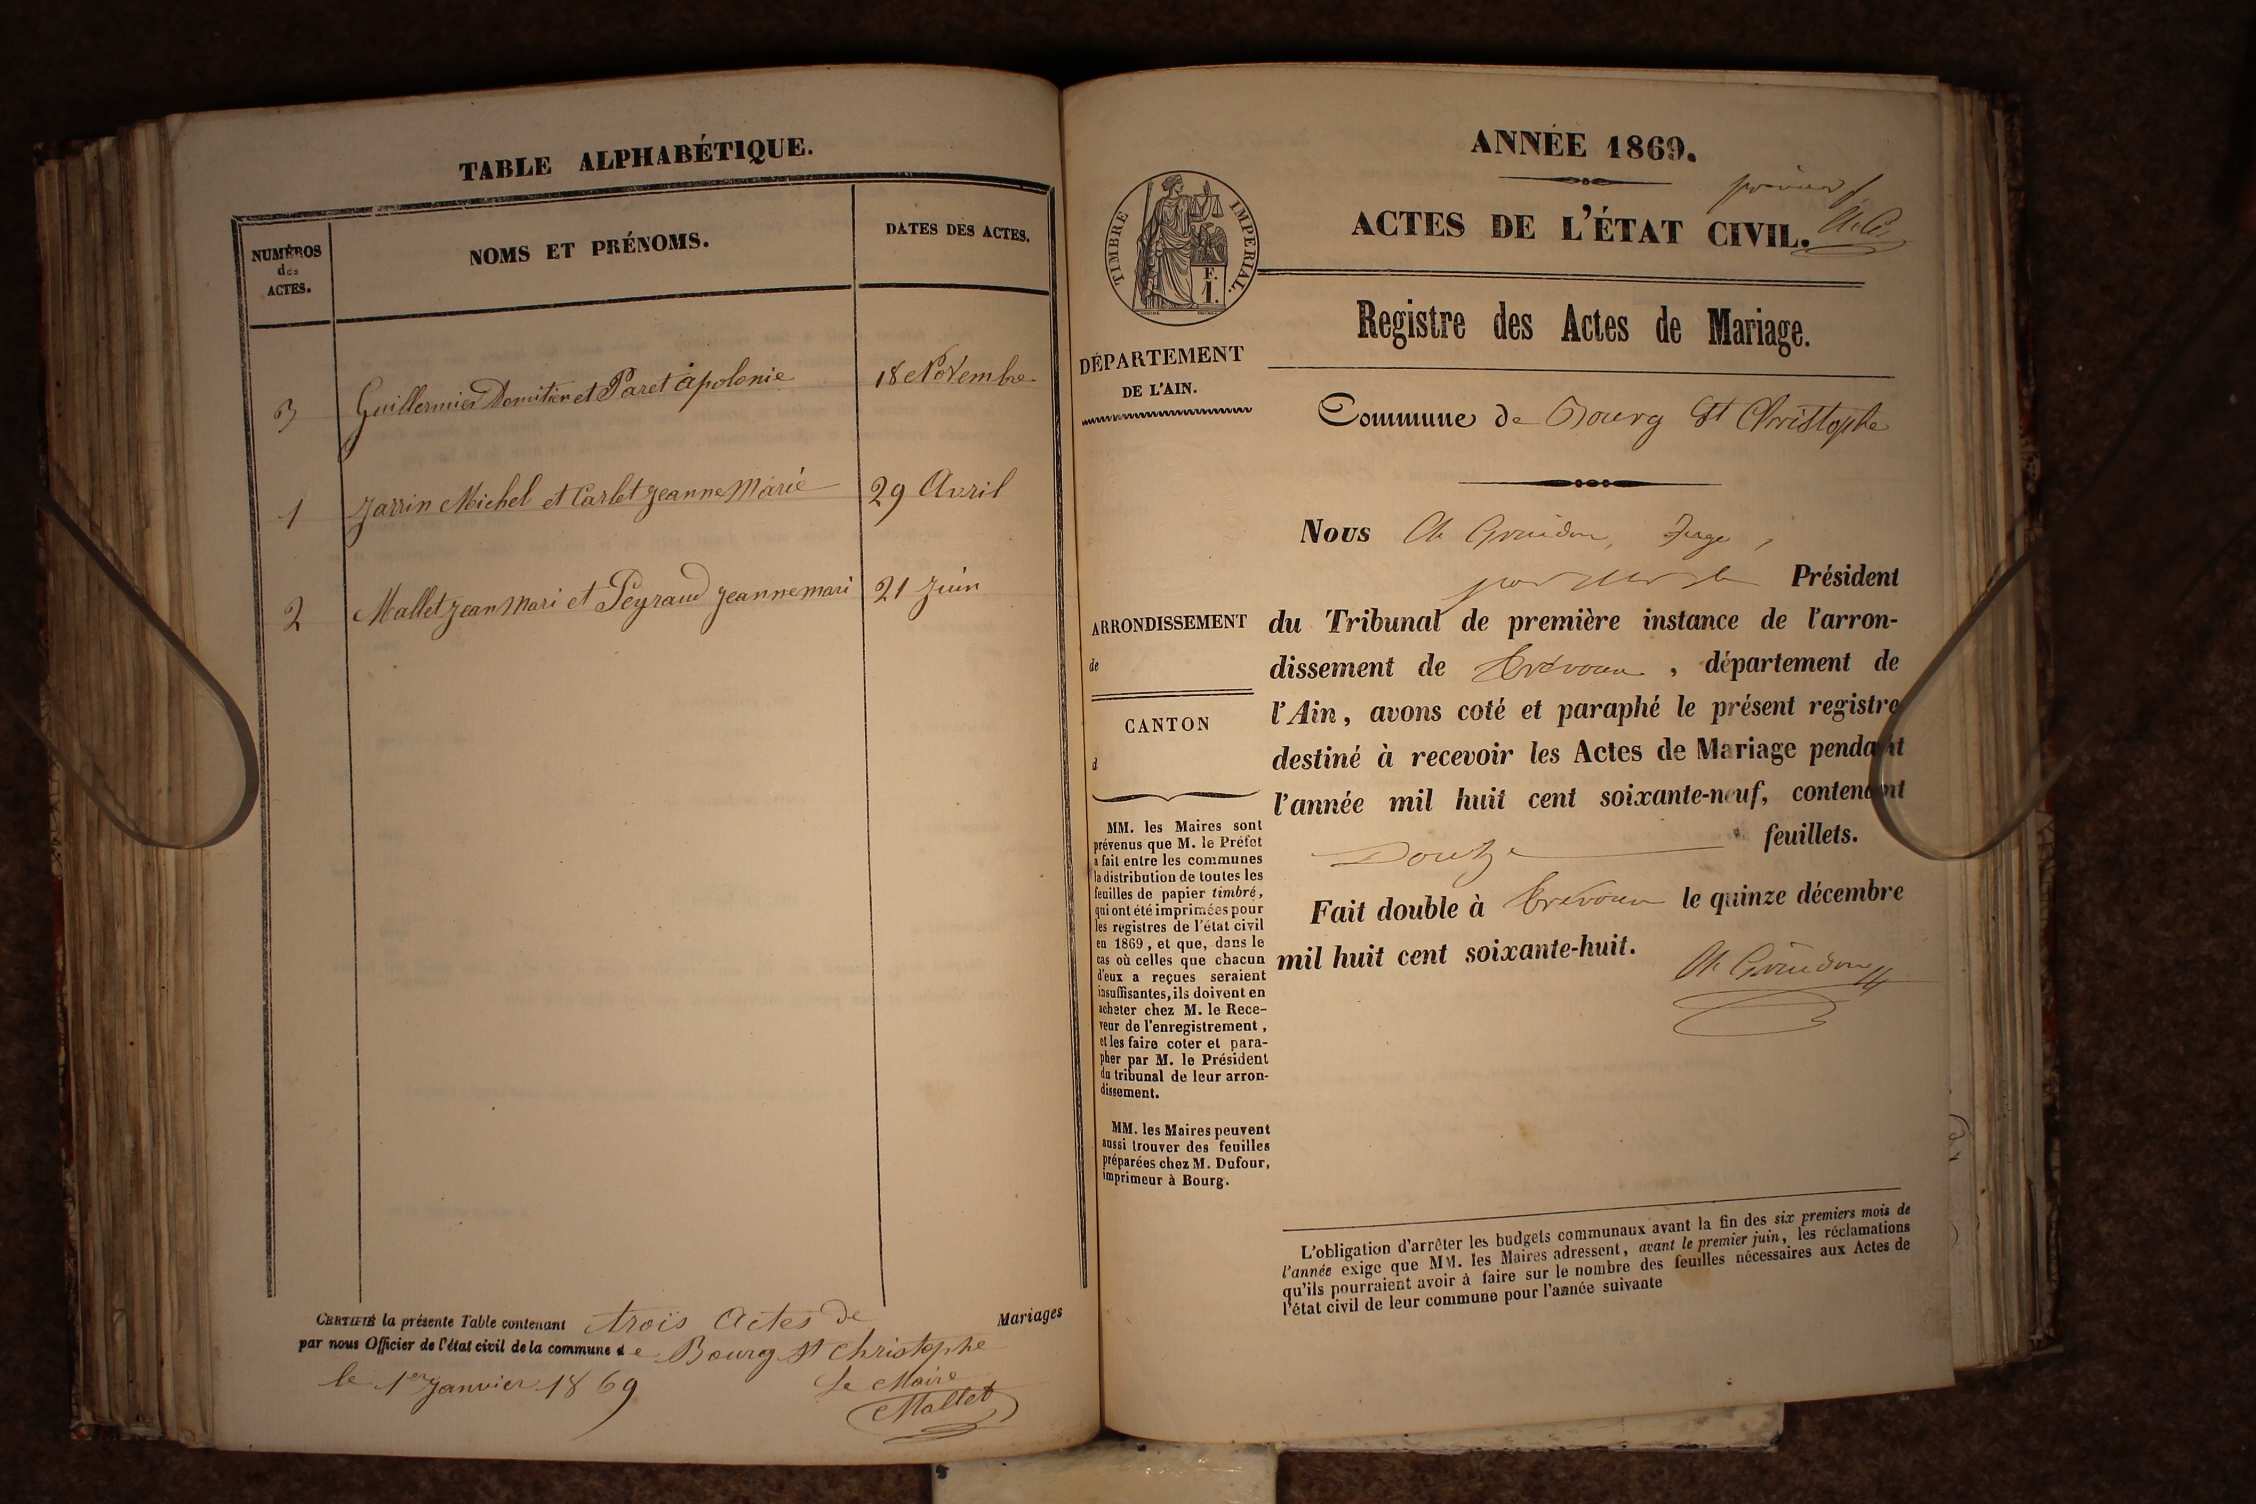 TABLE ALPHABÉTIQUE.
NUMÉROS
des
ACTES.
NOMS ET PRÉNOMS.
DATES DES ACTES.
3 Guillermier Domitien et Paret Apolonie 18 Novembre
1 Jarrin Michel et Carlet Jeanne Marie 29 Avril
2 Mallet Jean Mari et Peyraud Jeanne mari 21 Juin
CERTIFIÉ la présente Table contenant trois Actes de Mariages
par nous Officier de l'état civil de la commune de Bourg St Christophe
le 1er Janvier 1869
Le Maire
Mallet
ANNÉE 1869.
ACTES DE L'ÉTAT CIVIL.
TIMBRE IMPERIAL.
F.
1.
Registre des Actes de Mariage.
DÉPARTEMENT
DE L'AIN.
Commune de Bourg St Christophe
Nous Juge,
Président
ARRONDISSEMENT
de
CANTON
d
du Tribunal de première instance de l'arron-
dissement de Trévoux, département de
l'Ain, avons coté et paraphé le présent registre
destiné à recevoir les Actes de Mariage pendant
l'année mil huit cent soixante-neuf, contenant
Douze feuillets.
Fait double à Trévoux le quinze décembre
mil huit cent soixante-huit.
MM. les Maires sont
prévenus que M. le Préfet
a fait entre les communes
la distribution de toutes les
feuilles de papier timbré,
qui ont été imprimées pour
les registres de l'état civil
en 1869, et que, dans le
cas où celles que chacun
d'eux a reçues seraient
insuffisantes, ils doivent en
acheter chez M. le Rece-
veur de l'enregistrement,
et les faire coter et para-
pher par M. le Président
du tribunal de leur arron-
dissement.
MM. les Maires peuvent
aussi trouver des feuilles
préparées chez M. Dufour,
imprimeur à Bourg.
L'obligation d'arrêter les budgets communaux avant la fin des six premiers mois de
l'année exige que MM. les Maires adressent, avant le premier juin, les réclamations
qu'ils pourraient avoir à faire sur le nombre des feuilles nécessaires aux Actes de
l'état civil de leur commune pour l'année suivante